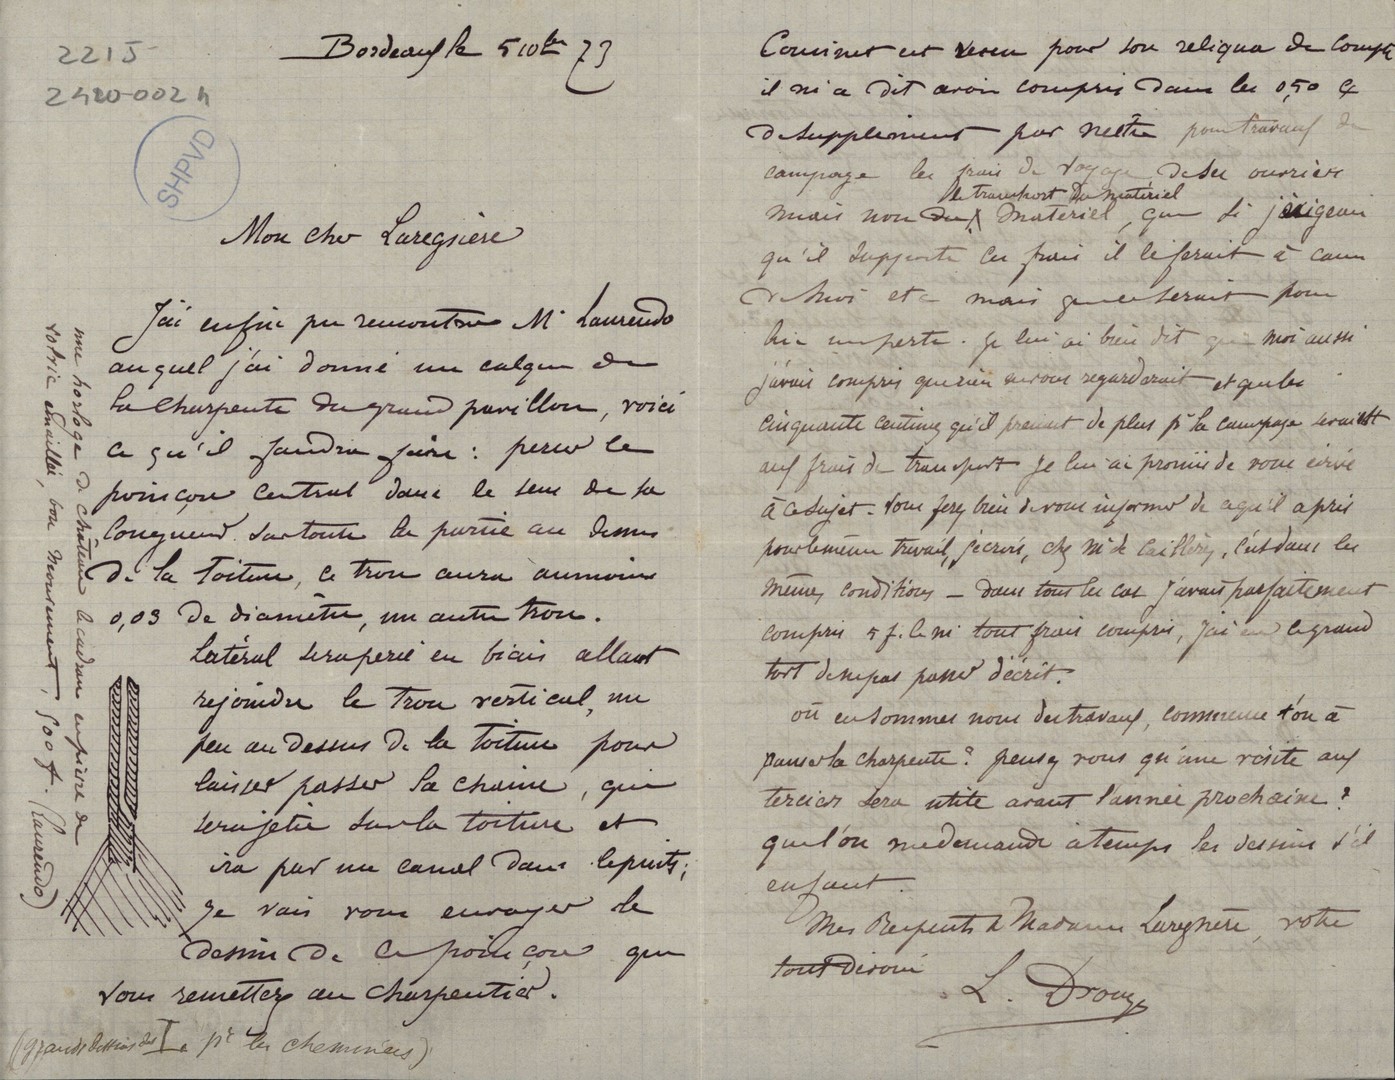 2215
2420-002
SHPVD
Bordeaux le 5 10bre 73
Mon cher Laregnère
J'ai enfin pu rencontrer Mr Laurendo
auquel j'ai donné un calque de
la charpente du grand pavillon, voici
ce qu'il faudra faire : percer le
poinçon central dans le sens de sa
longueur sur toute la partie au dessus
de la toiture, ce trou aura au moins
0,03 de diamètre, un autre trou.
latéral sera percé en biais allant
rejoindre le trou vertical, un
peu au dessus de la toiture pour
laisser passer la chaine, qui
sera jetée sur la toiture et
ira par un canal dans le puits ;
Je vais vous envoyer le
dessin de ce poinçon que
vous remettrez au charpentier.
(grands dessins des I pr les cheminées)
une horloge de château le cadran en pierre de
volvic émaillée, bon mouvement, 500 f. (Laurendo)
Cousinet est venu pour son reliqua de compte
il m'a dit avoir compris dans les 0,50 c
de supplément par mètre pour travaux de
campagne les frais de voyage de ses ouvriers
le transport du matériel
mais non du matériel, que si j'exigeais
qu'il supporte ces frais il le ferait à cause
de moi etc mais que ce serait pour
lui une perte. Je lui ai bien dit que moi aussi
j'avais compris que rien ne vous regarderait et que les
cinquante centimes qu'il prenait de plus pr la campagne seraient
aux frais de transport Je lui ai promis de vous écrire
à ce sujet. Vous ferez bien de vous informer de ce qu'il a pris
pour le même travail, je crois, chez Mr de c'est dans les
mêmes conditions – dans tout les cas j'avais parfaitement
compris 5 f. le m tout frais compris, j'ai eu le grand
tort de ne pas passer d'écrit.
où en sommes nous des travaux, commence t'on à
panser la charpente ? pensez vous qu'une visite aux
terciers sera utile avant l'année prochaine ?
que l'on me demande à temps les dessins s'il
en faut.
Mes Respects à Madame Laregnère, votre
tout dévoué
L. Drouyn